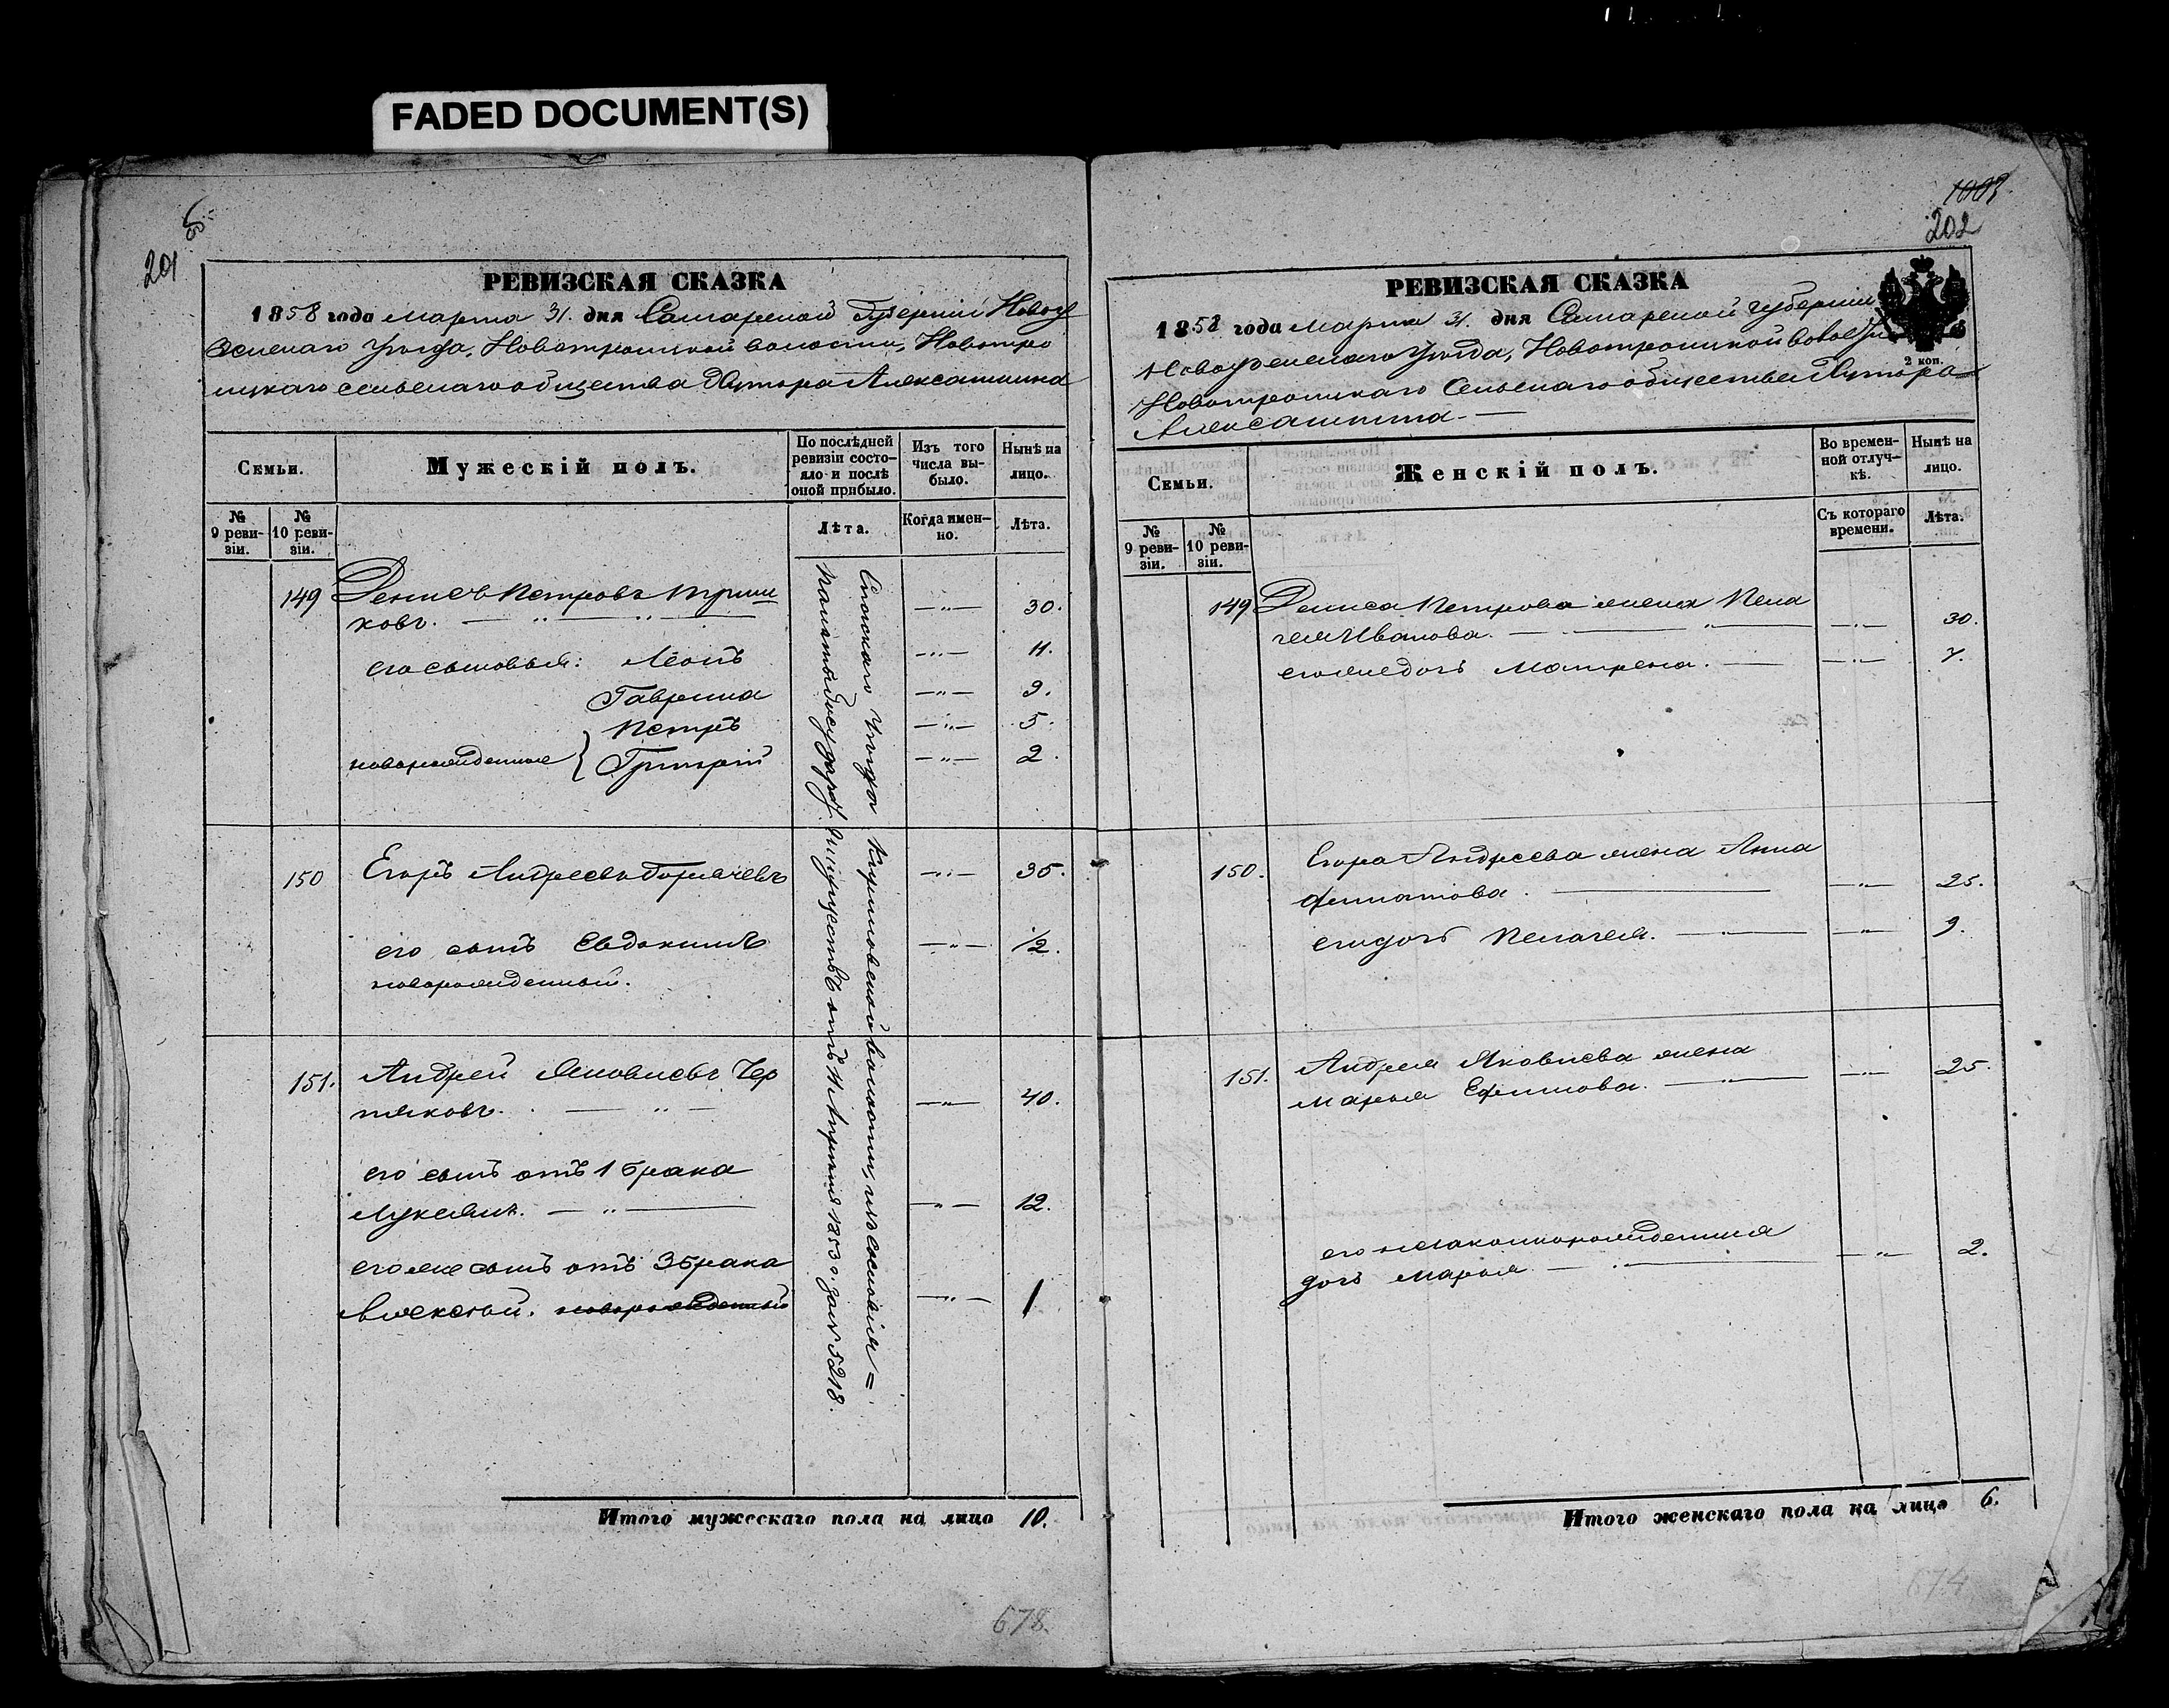 FADED DOCUMENT(S)
201
РЕВИЗСКАЯ СКАЗКА
1858 года марта 31. дня Самарской Губерніи Новоу
зенскаго Уѣзда, Новотроицкой волости, Новотро
ицкаго сельскаго общества Хутора Алексашкина
Семьи.
Мужескій полъ.
По послѣдней ревизіи состояло и послѣ оной прибыло.
Изъ того числа выбыло.
Нынѣ на лицо.
№ 9 ревизіи.
№ 10 ревизіи.
Лѣта.
Когда именно.
Лѣта.
149 Денисъ Петровъ
ковъ. — „ — „ — — „ — 30.
его сыновья: Леонъ — „ — 11.
Гаврила — „ — 9.
Петръ — „ — 5.
новорожденные } Григорій — „ — 2.
150 Егоръ Андреевъ Горячевъ — „ — 35.
его сынъ Евдокимъ — „ — 1/2.
новорожденный.
151. Андрей Яковлевъ Чер
няковъ. — „ — — „ — 40.
его сынъ отъ 1 брака
Лукьянъ. — „ — — „ — 12.
его же сынъ отъ 3 брака
Алексѣй. новорожденный — „ — 1
уѣзда волости, изъ сословія =
Государ. Имуществъ отъ 11 Апрѣля 1853 г. за № 5218.
Итого мужескаго пола на лицо 10.
678.
1003
202
РЕВИЗСКАЯ СКАЗКА
1858 года Марта 31. дня Самарской Губерніи
Новоузенскаго Уѣзда, Новотроицкой волости
Новотроицкаго Сельскаго общества Хутора
Алексашкина. —
2 коп.
Семьи.
Женскій полъ.
Во временной отлучкѣ.
Нынѣ на лицо.
№ 9 ревизіи.
№ 10 ревизіи.
Съ котораго времени.
Лѣта.
149 Дениса Петрова жена Пела
гея Иванова. — „ — — „ — 30.
его же дочь Матрена. — — „ — 7.
150. Егора Андреева жена Анна
Филатова. — — „ — 25.
его дочь Пелагея. — „ — — „ — 9.
151. Андрея Яковлева жена
Марья Ефимова. — „ — — „ — 25.
его незаконнорожденная
дочь Марья — „ — — „ — 2.
Итого женскаго пола на лицо 6.
674